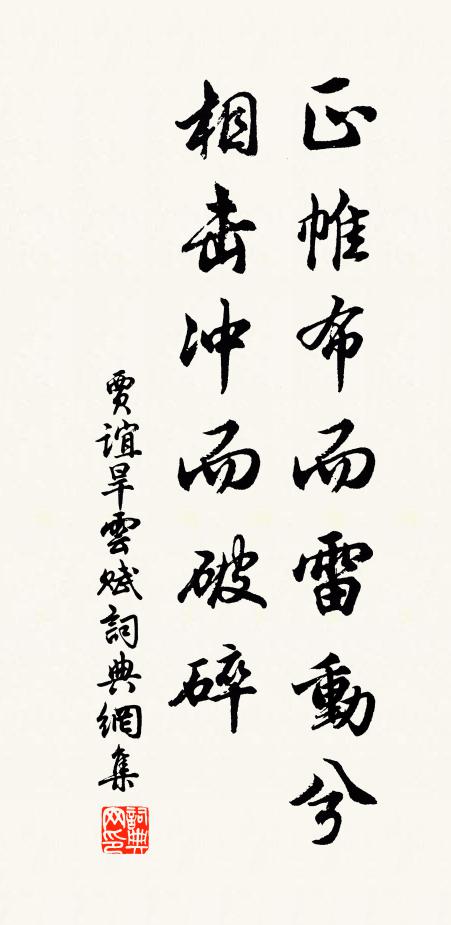 正帷布而雷動兮
相击冲而破碎
賈誼旱雲賦詞典網集
詞典
网印